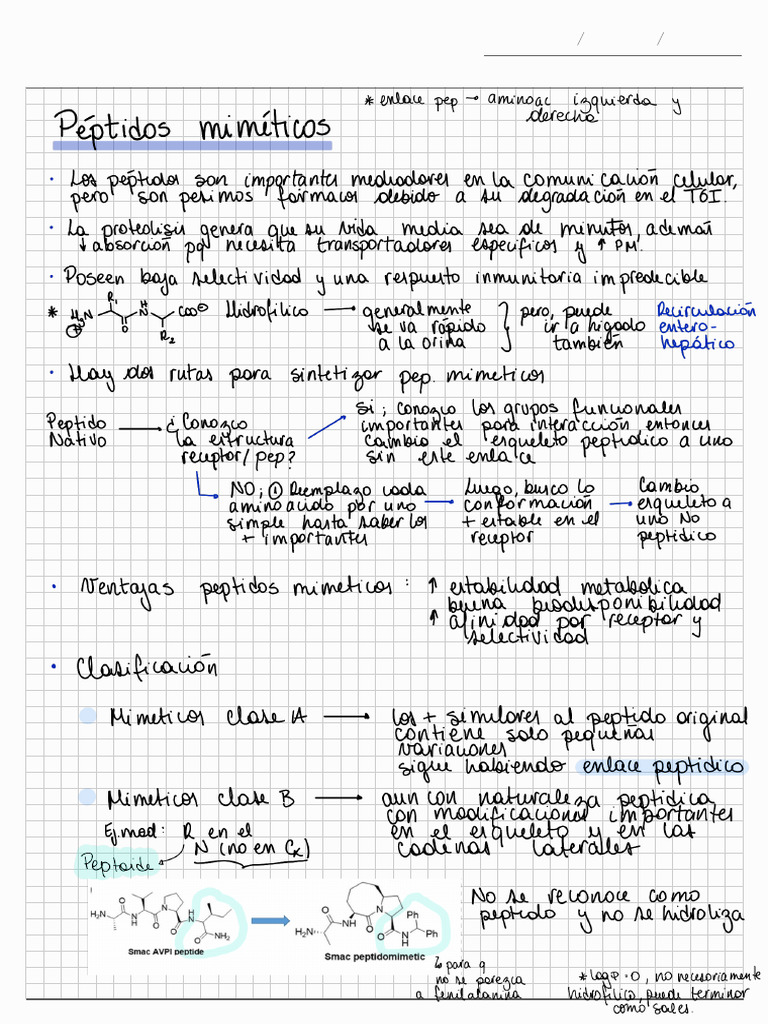 * enlace pep → aminoac izquierda y
derecha
Péptidos miméticos
• Los péptidos son importantes mediadores en la comunicación celular,
pero son pesimos farmacos debido a su degradación en el TGI.
• La proteolisis genera que su vida media sea de minutos, además
↓ absorción pq necesita transportadores especificos y ↑ PM.
• Poseen baja selectividad y una respuesta inmunitaria impredecible
* H3N ⊕ R1 O H N R2 COO⊖ Hidrofílico → generalmente
se va rápido
a la orina
pero, puede
ir a higado
también
Recirculación
entero-
hepático
• Hay dos rutas para sintetizar pep. mimeticos
Peptido
Nativo
→ ¿Conozco
la estructura
receptor/pep?
Si; conozco los grupos funcionales
importantes para interacción, entonces
cambio el esqueleto peptidico a uno
sin este enlace
NO; ① Reemplazo cada
aminoacido por uno
simple hasta saber los
+ importantes
→ Luego, busco la
conformación
+ estable en el
receptor
→ Cambio
esqueleto a
uno No
peptidico
• Ventajas peptidos mimeticos: ↑ estabilidad metabolica
buena biodisponibilidad
↑ afinidad por receptor y
selectividad
• Clasificación
Mimeticos clase A → los + similares al peptido original
contiene solo pequeñas
variaciones
sigue habiendo enlace peptidico
Mimeticos clase B → aun con naturaleza peptidica
con modificaciones importantes
en el esqueleto y en las
cadenas laterales
Ej. mod: R en el
N (no en Cα)
Peptoide
H2N O N H O N O H N O NH2
Smac AVPI peptide
H2N O NH O N O N H Ph Ph
Smac peptidomimetic
No se reconoce como
peptido y no se hidroliza
↳ para q
no se parezca
a fenilalanina
* logP · 0, no necesariamente
hidrofilico, puede terminar
como sales.